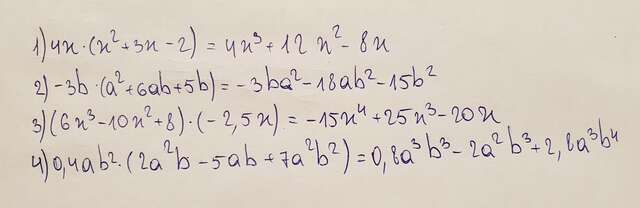 1) 4x·(x²+3x-2) = 4x³+12x²-8x
2) -3b·(a²+6ab+5b) = -3ba²-18ab²-15b²
3) (6x³-10x²+8)·(-2,5x) = -15x⁴+25x³-20x
4) 0,4ab²·(2a²b-5ab+7a²b²) = 0,8a³b³-2a²b³+2,8a³b⁴